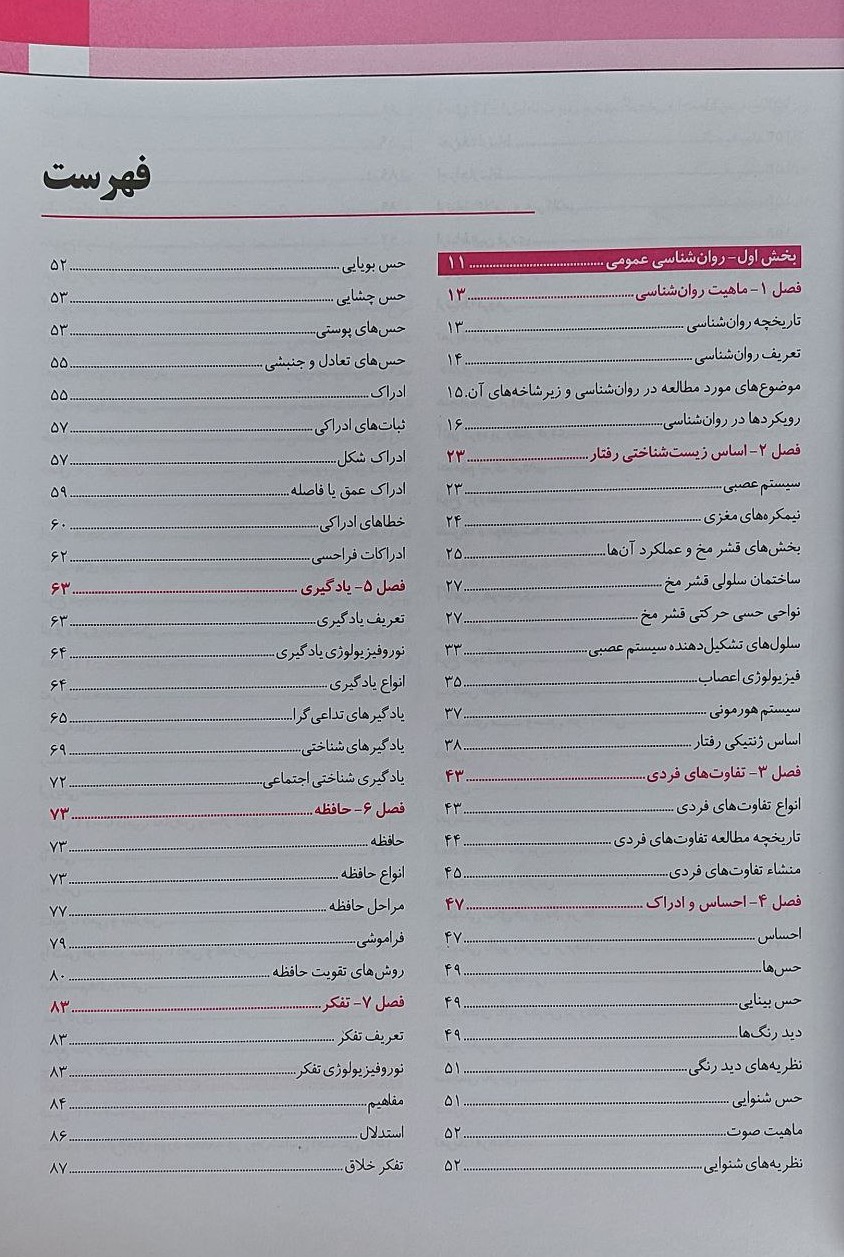 فهرست
بخش اول- روان‌شناسی عمومی ........ ۱۱
فصل ۱- ماهیت روان‌شناسی ........ ۱۳
تاریخچه روان‌شناسی ........ ۱۳
تعریف روان‌شناسی ........ ۱۴
موضوع‌های مورد مطالعه در روان‌شناسی و زیرشاخه‌های آن. ۱۵
رویکردها در روان‌شناسی ........ ۱۶
فصل ۲- اساس زیست‌شناختی رفتار ........ ۲۳
سیستم عصبی ........ ۲۳
نیمکره‌های مغزی ........ ۲۴
بخش‌های قشر مخ و عملکرد آن‌ها ........ ۲۵
ساختمان سلولی قشر مخ ........ ۲۷
نواحی حسی حرکتی قشر مخ ........ ۲۷
سلول‌های تشکیل‌دهنده سیستم عصبی ........ ۳۳
فیزیولوژی اعصاب ........ ۳۵
سیستم هورمونی ........ ۳۷
اساس ژنتیکی رفتار ........ ۳۸
فصل ۳- تفاوت‌های فردی ........ ۴۳
انواع تفاوت‌های فردی ........ ۴۳
تاریخچه مطالعه تفاوت‌های فردی ........ ۴۴
منشاء تفاوت‌های فردی ........ ۴۵
فصل ۴- احساس و ادراک ........ ۴۷
احساس ........ ۴۷
حس‌ها ........ ۴۹
حس بینایی ........ ۴۹
دید رنگ‌ها ........ ۴۹
نظریه‌های دید رنگی ........ ۵۱
حس شنوایی ........ ۵۱
ماهیت صوت ........ ۵۲
نظریه‌های شنوایی ........ ۵۲
حس بویایی ........ ۵۲
حس چشایی ........ ۵۳
حس‌های پوستی ........ ۵۳
حس‌های تعادل و جنبشی ........ ۵۵
ادراک ........ ۵۵
ثبات‌های ادراکی ........ ۵۷
ادراک شکل ........ ۵۷
ادراک عمق یا فاصله ........ ۵۹
خطاهای ادراکی ........ ۶۰
ادراکات فراحسی ........ ۶۲
فصل ۵- یادگیری ........ ۶۳
تعریف یادگیری ........ ۶۳
نوروفیزیولوژی یادگیری ........ ۶۴
انواع یادگیری ........ ۶۴
یادگیرهای تداعی‌گرا ........ ۶۵
یادگیرهای شناختی ........ ۶۹
یادگیری شناختی اجتماعی ........ ۷۲
فصل ۶- حافظه ........ ۷۳
حافظه ........ ۷۳
انواع حافظه ........ ۷۳
مراحل حافظه ........ ۷۷
فراموشی ........ ۷۹
روش‌های تقویت حافظه ........ ۸۰
فصل ۷- تفکر ........ ۸۳
تعریف تفکر ........ ۸۳
نوروفیزیولوژی تفکر ........ ۸۳
مفاهیم ........ ۸۴
استدلال ........ ۸۶
تفکر خلاق ........ ۸۷